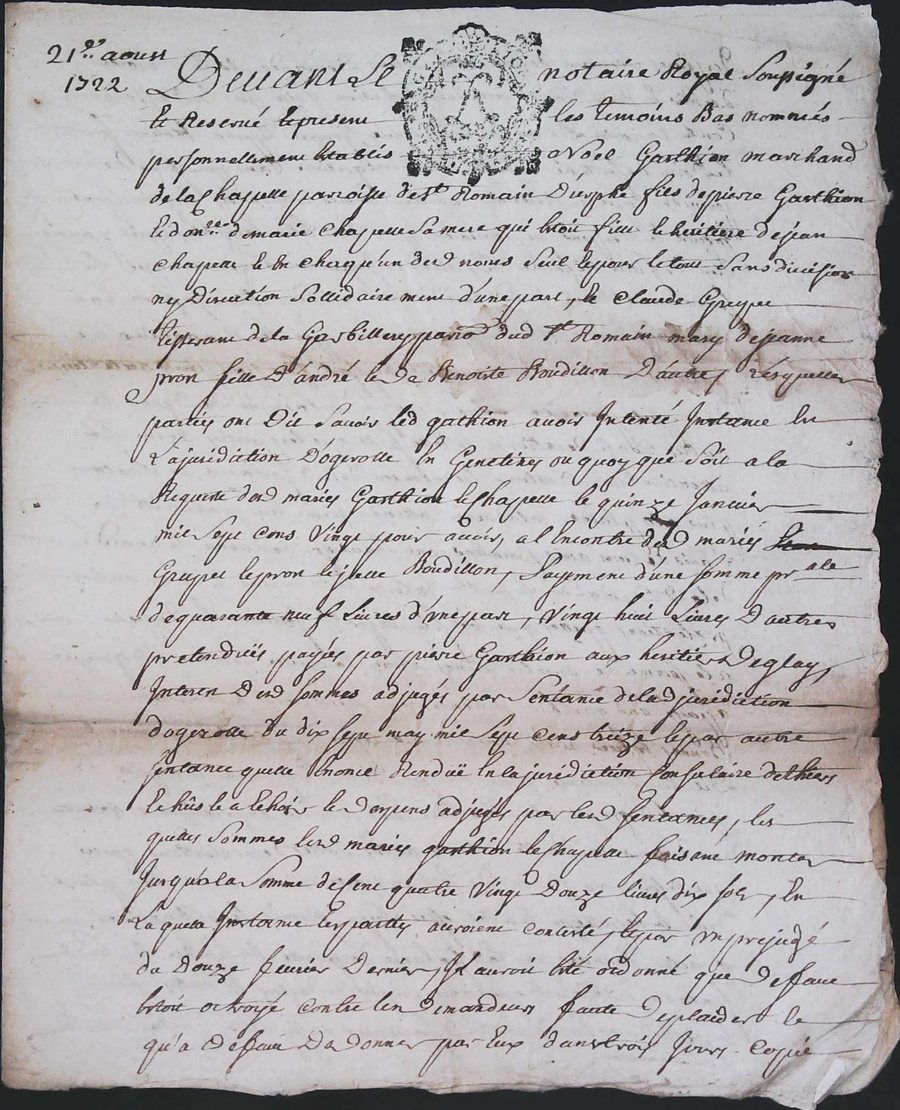 21e aoust
1722
Devant Le notaire Royal Soussigné
et Reservé le present les temoins Bas nommés
personnellement Establis Noel Garthion marchand
de la Chapelle paroisse de St Romain D'urphé fils de pierre Garthion
et de marie Chapelle Sa mere qui Estoit fille et heritiere de jean
Chapelle et En chaqu'un desd noms Seul et pour le tout Sans division
ny Direction Sollidairement d'une part, et Claude
tisserant de la paro dud St Romain mary de jeanne
pron fille D'andré et de Benoiste Boudillon D'autre, Lesquelles
parties ont Dit Savoir led gathion avoir Intenté Instance En
La jurediction D'ogerolle En ou quoy que Soit a la
Requeste desd mariés Garthion et Chapelle le quinze Janvier
mil Sept cens Vingt pour avoir, a l'Encontre desd mariés
et pron et Boudillon, Payement d'une somme prale
de quarante neuf Livres d'une part, Vingt huit Livres D'autre
pretenduës payées par pierre Garthion aux heritiers
Interest Desd Sommes adjugés par Sentance de lad jurediction
dogerolle du dix Sept may mil Sept Cens treize et par autre
Sentance quelle Enonce Renduë En la jurediction Consulaire de thiers
et les Depens adjugés par lesd Sentances, les
quelles Sommes lesd mariés garthion et Chapelle faisant monter
Jusqu'a la Somme de Cent quatre Vingt Douze livres dix sols, En
Laquelle Instance les parties auroient contesté, et par un prejugé
du Douze fevrier Dernier, Il auroit Esté ordonné que deffaut
Estoit octroyé contre les Demandeurs faute de plaider et
qu'a Deffaut De donner par Eux dans trois Jours Copie